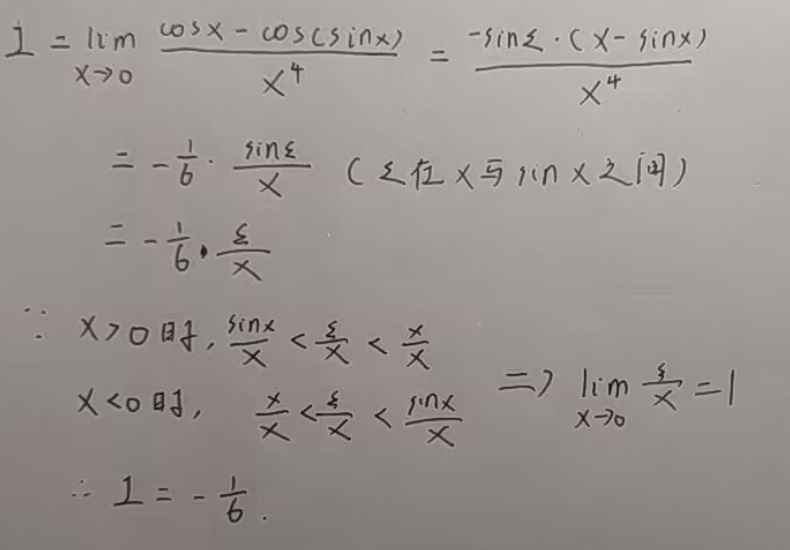 I = lim_{x→0} (cosx - cos(sinx)) / x^4 = (-sinξ · (x - sinx)) / x^4
= -1/6 · sinξ / x (ξ在x与sinx之间)
= -1/6 · ξ/x
∵ x>0时, sinx/x < ξ/x < x/x
x<0时, x/x < ξ/x < sinx/x ⇒ lim_{x→0} ξ/x = 1
∴ I = -1/6.